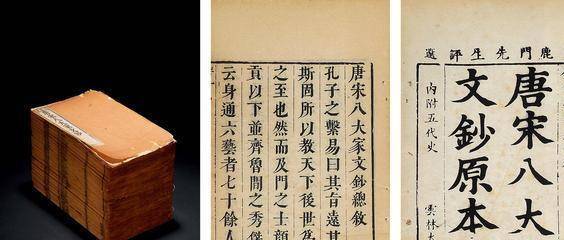 唐宋八大家文鈔總敘
孔子之繫易曰其旨遠其
斯固所以教天下後世為
之至也然而及門之士顏
貢以下並齊魯間之秀傑
云身通六藝者七十餘人
鹿門先生評選
唐宋八大
文鈔原本
內附五代史
雲林